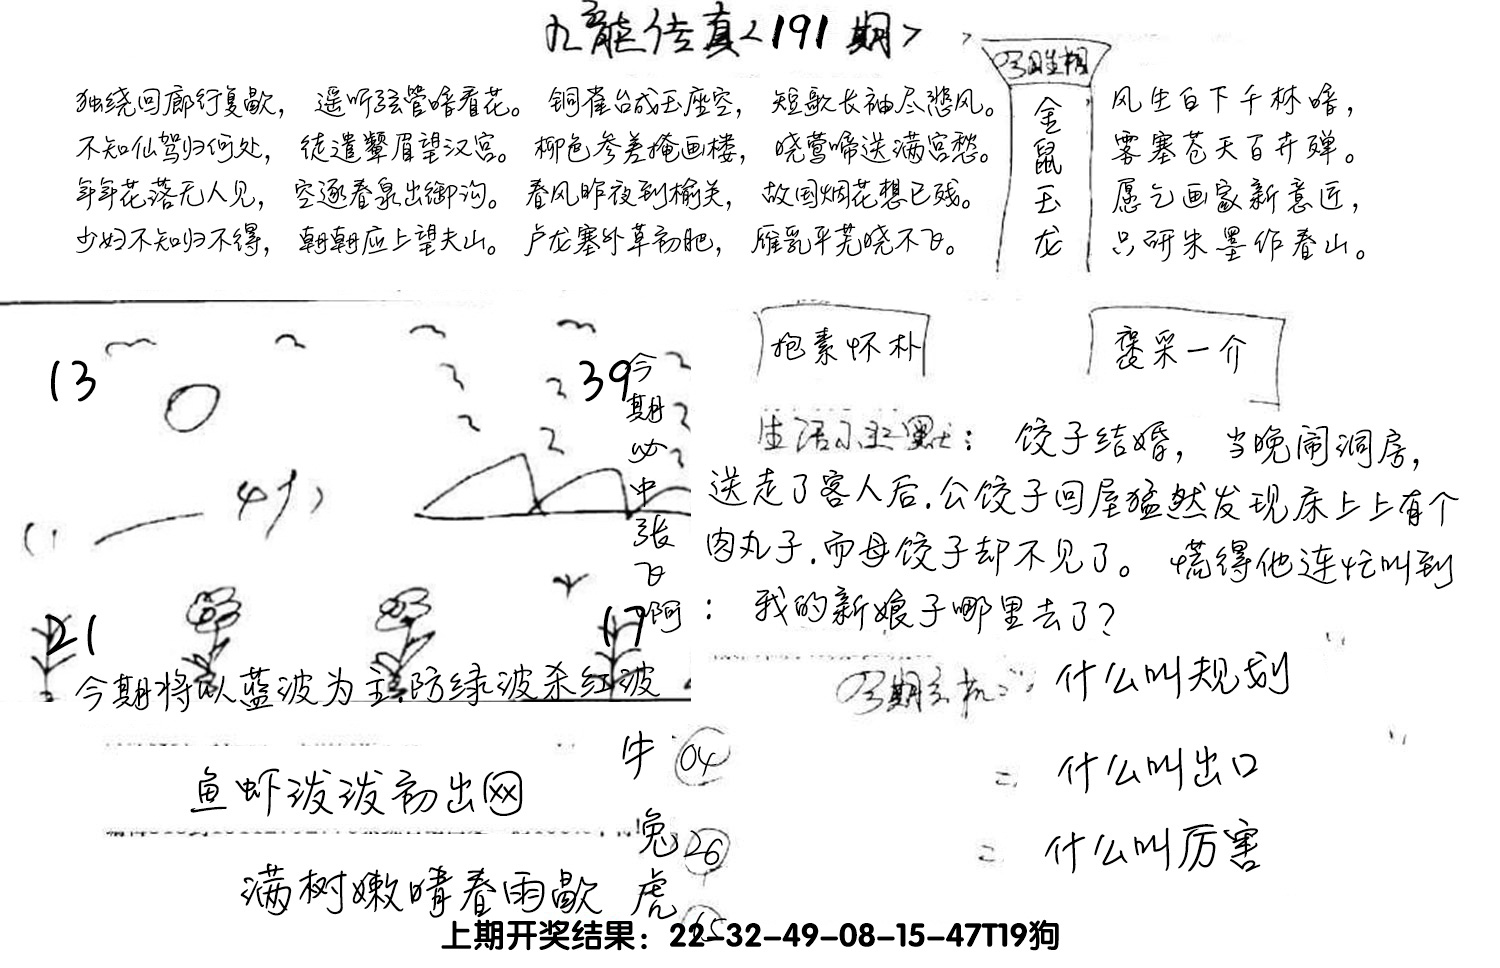 九龍传真<191期>
独绕回廊行复歇， 遥听弦管暗看花。 铜雀台成玉座空， 短歌长袖尽悲风。
不知仙驾归何处， 徒遣颦眉望汉宫。 柳色参差掩画楼， 晓莺啼送满宫愁。
年年花落无人见， 空逐春泉出御沟。 春风昨夜到榆关， 故国烟花想已残。
少妇不知归不得， 朝朝应上望夫山。 卢龙塞外草初肥， 雁乳平芜晓不飞。
金鼠玉龙
风生白下千林暗，
雾塞苍天百卉殚。
愿乞画家新意匠，
只研朱墨作春山。
13
39
今期必中张飞啊
21
17
今期将以蓝波为主防绿波杀红波
抱素怀朴
褒采一介
生活小幽默： 饺子结婚， 当晚闹洞房，
送走了客人后.公饺子回屋猛然发现床上上有个
肉丸子.而母饺子却不见了。 慌得他连忙叫到
： 我的新娘子哪里去了?
什么叫规划
= 什么叫出口
= 什么叫厉害
鱼虾泼泼初出网
满树嫩晴春雨歇
牛 04
兔 26
虎
上期开奖结果：22-32-49-08-15-47T19狗